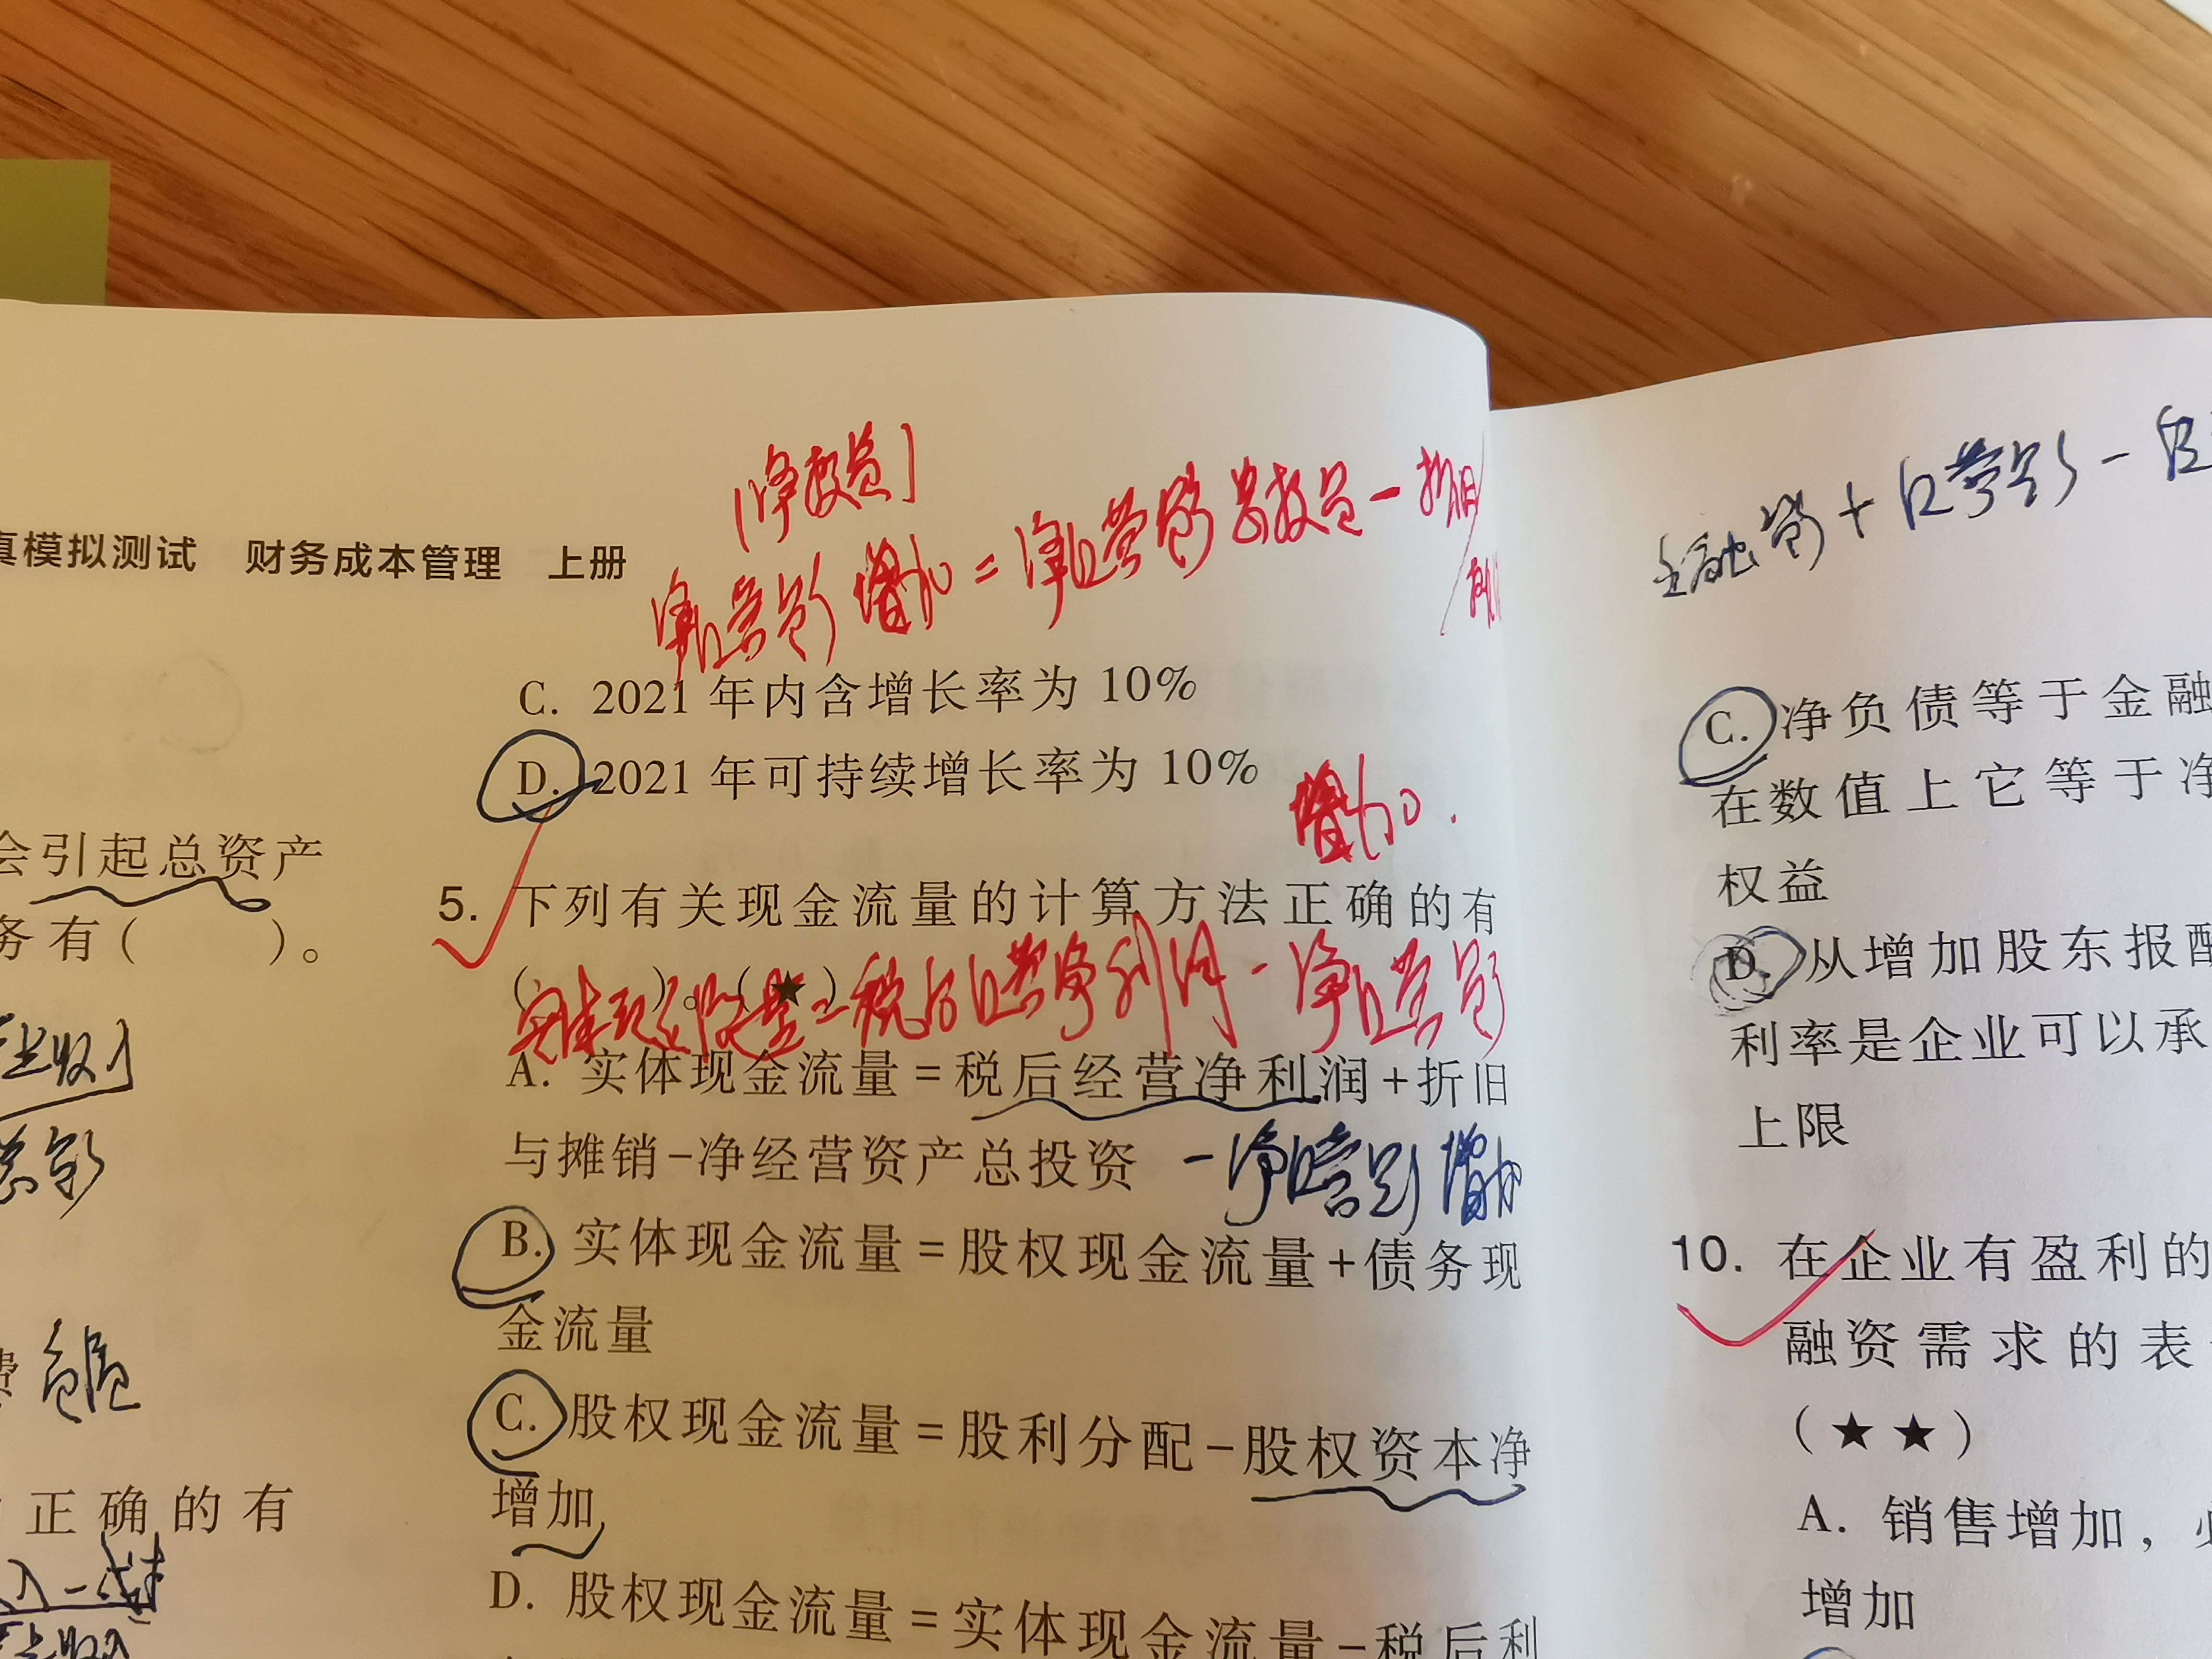 真模拟测试 财务成本管理 上册
(净投资)
净经营资产增加=净经营资产总投资-折旧/
C. 2021 年内含增长率为 10%
D. 2021 年可持续增长率为 10%
增加.
5. 下列有关现金流量的计算方法正确的有
( )。(★)
实体现金流量=税后经营净利润-净经营资产
A. 实体现金流量=税后经营净利润+折旧
与摊销-净经营资产总投资
-净经营资产增加
B. 实体现金流量=股权现金流量+债务现
金流量
C. 股权现金流量=股利分配-股权资本净
增加
D. 股权现金流量=实体现金流量-税后利
会引起总资产
务有( )。
总资产
费
正确的有
金融资产+经营资产-
C. 净负债等于金融
在数值上它等于净
权益
D. 从增加股东报酬
利率是企业可以承
上限
10. 在企业有盈利的
融资需求的表
(★★)
A. 销售增加,
增加